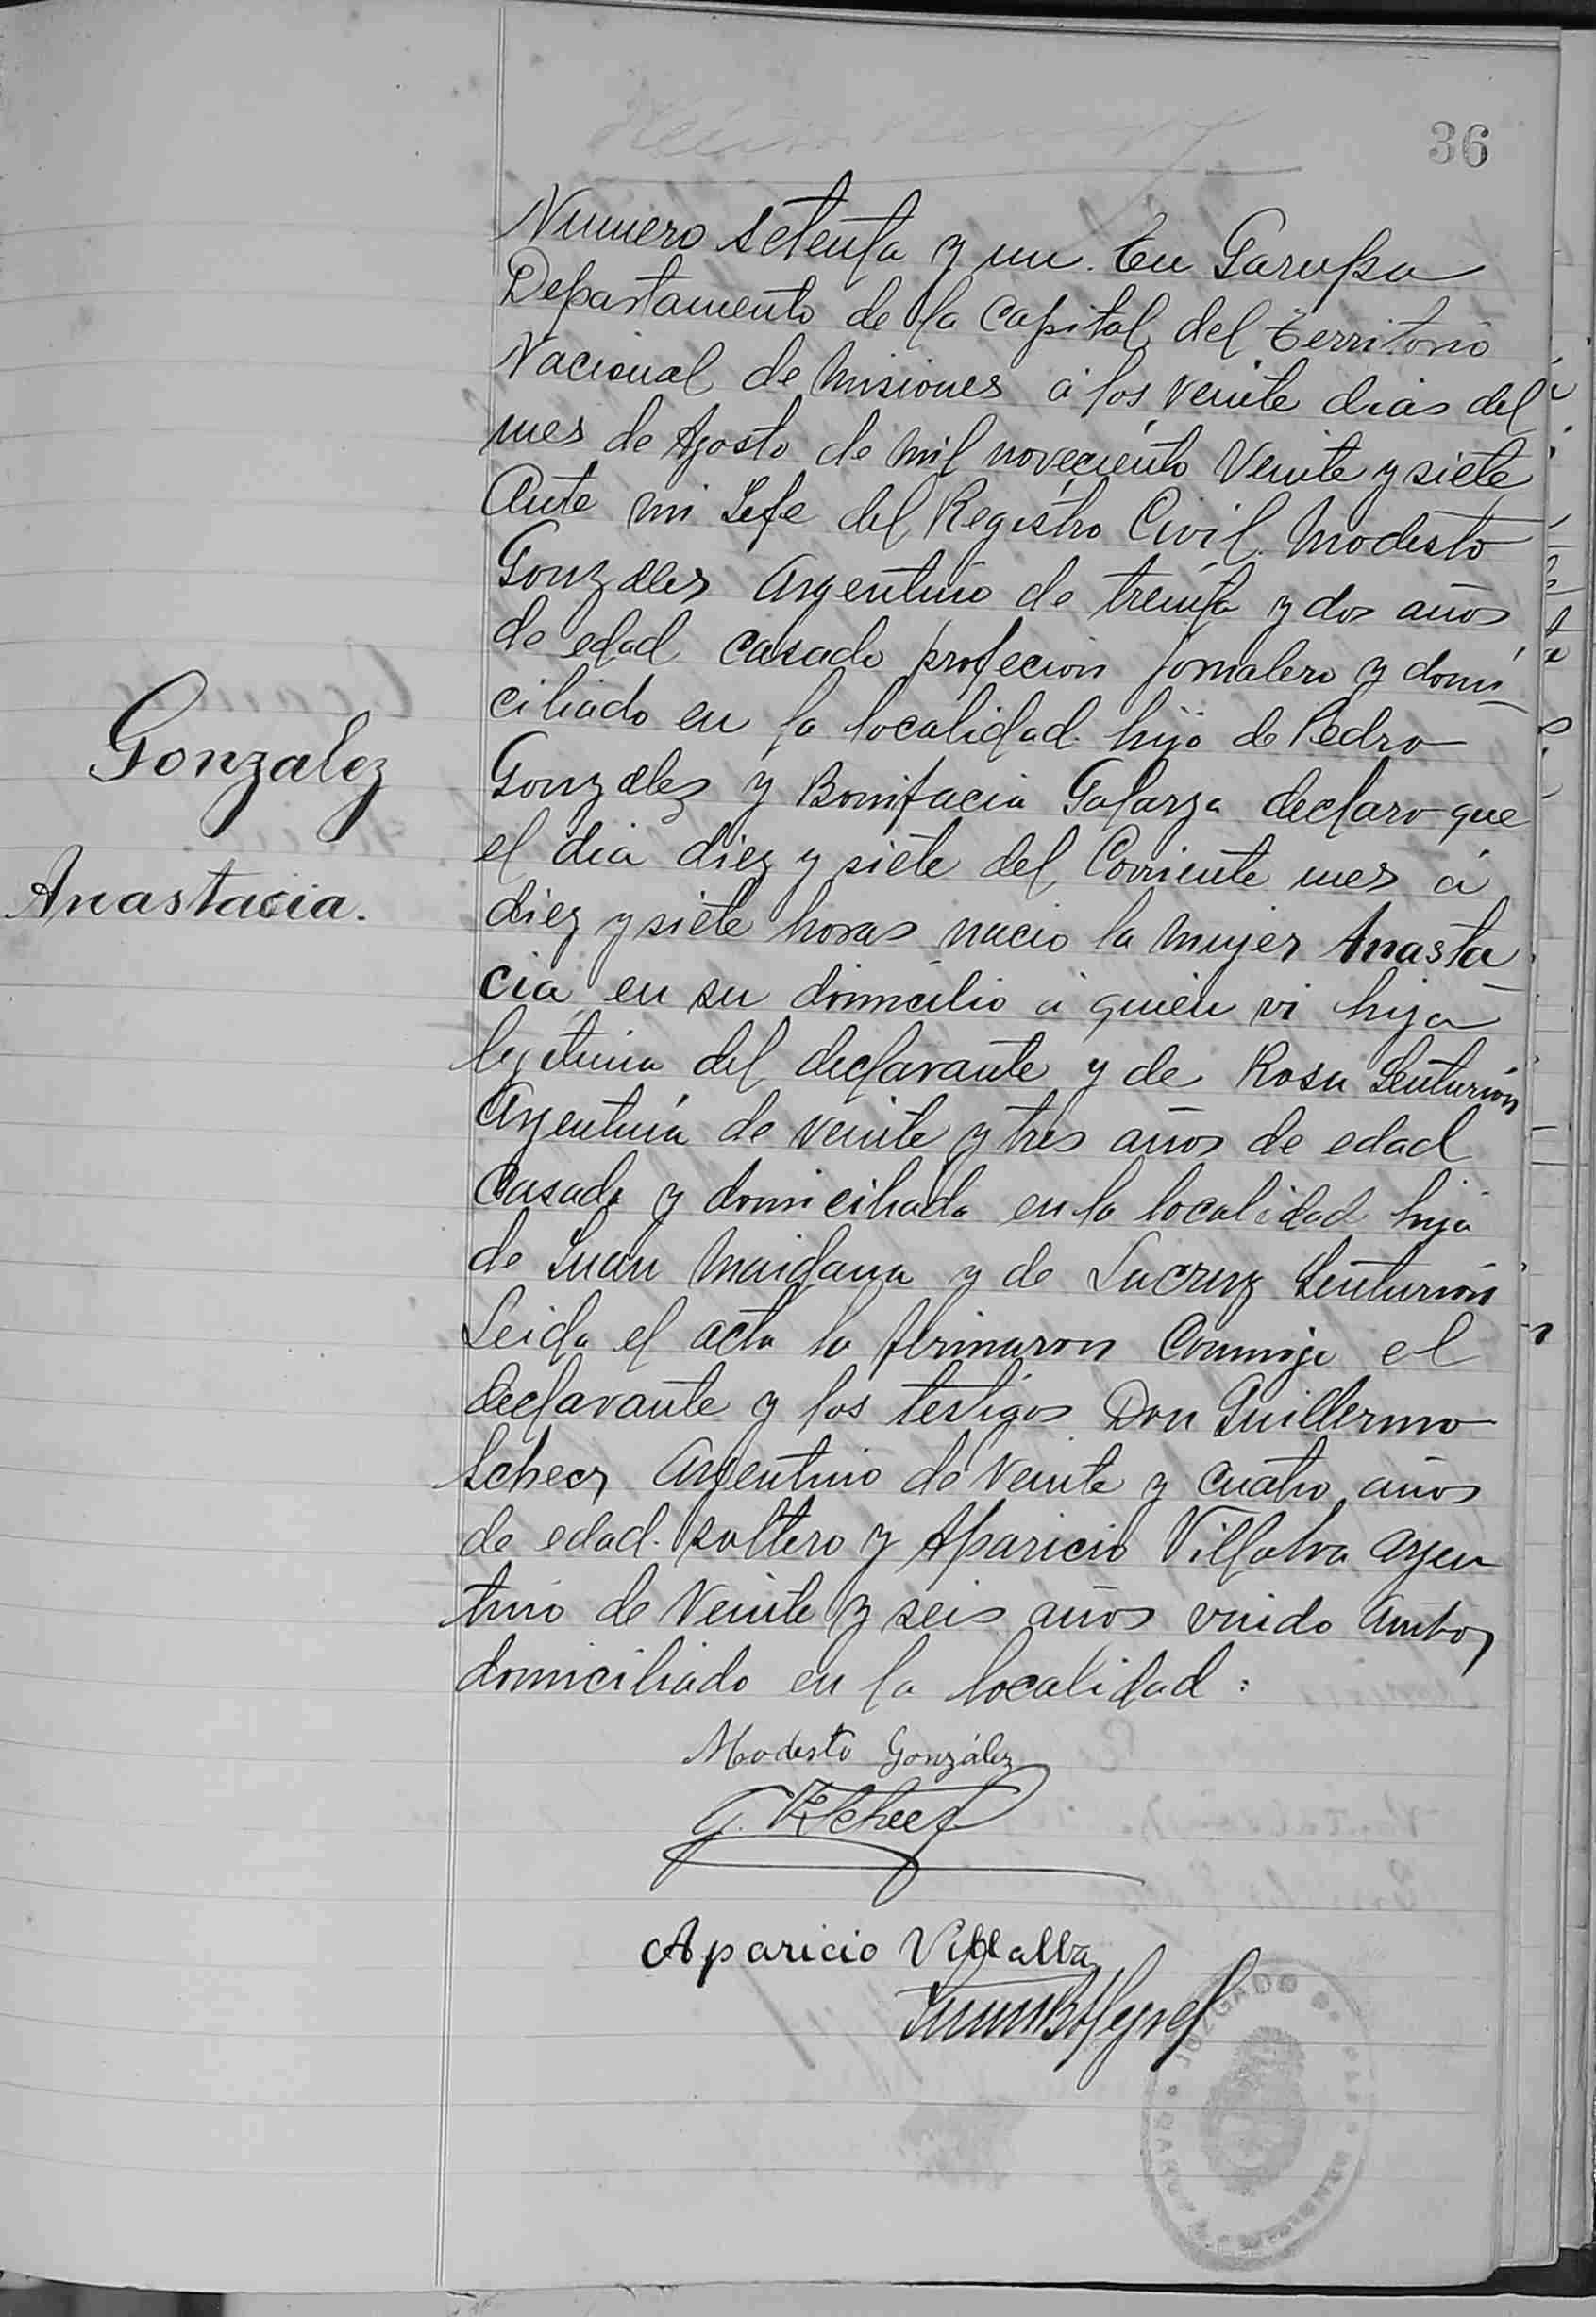 36
Numero setenta y un. En Garupa
Departamento de la Capital del Territorio
Nacional de Misiones á los veinte dias del
mes de Agosto de mil noveciento Veinte y siete
Ante mi Jefe del Registro Civil. Modesto
Gonzales Argentino de treinta y dos años
de edad casado profecion jornalero y domi
ciliado en la localidad hijo de Pedro
Gonzalez y Bonifacia Galarza declaro que
el dia diez y siete del Corriente mes á
diez y siete horas nacio la mujer Anasta
cia en su domicilio á quien vi hija
lejitima del declarante y de Rosa Senturión
Argentina de veinte y tres años de edad
Casada y domiciliada en la localidad hija
de Juan Maidana y de Lacruz Senturión
Leida el acta la firmaron Conmigo el
declarante y los testigos Don Guillermo
Scheer Argentino de veinte y cuatro años
de edad. soltero y Aparicio Villalva Argen
tino de Veinte y seis años viudo Ambos
domiciliado en la localidad:
Gonzalez
Anastacia.
Modesto González
G. Scheer
Aparicio Villalba
JUZGADO DE